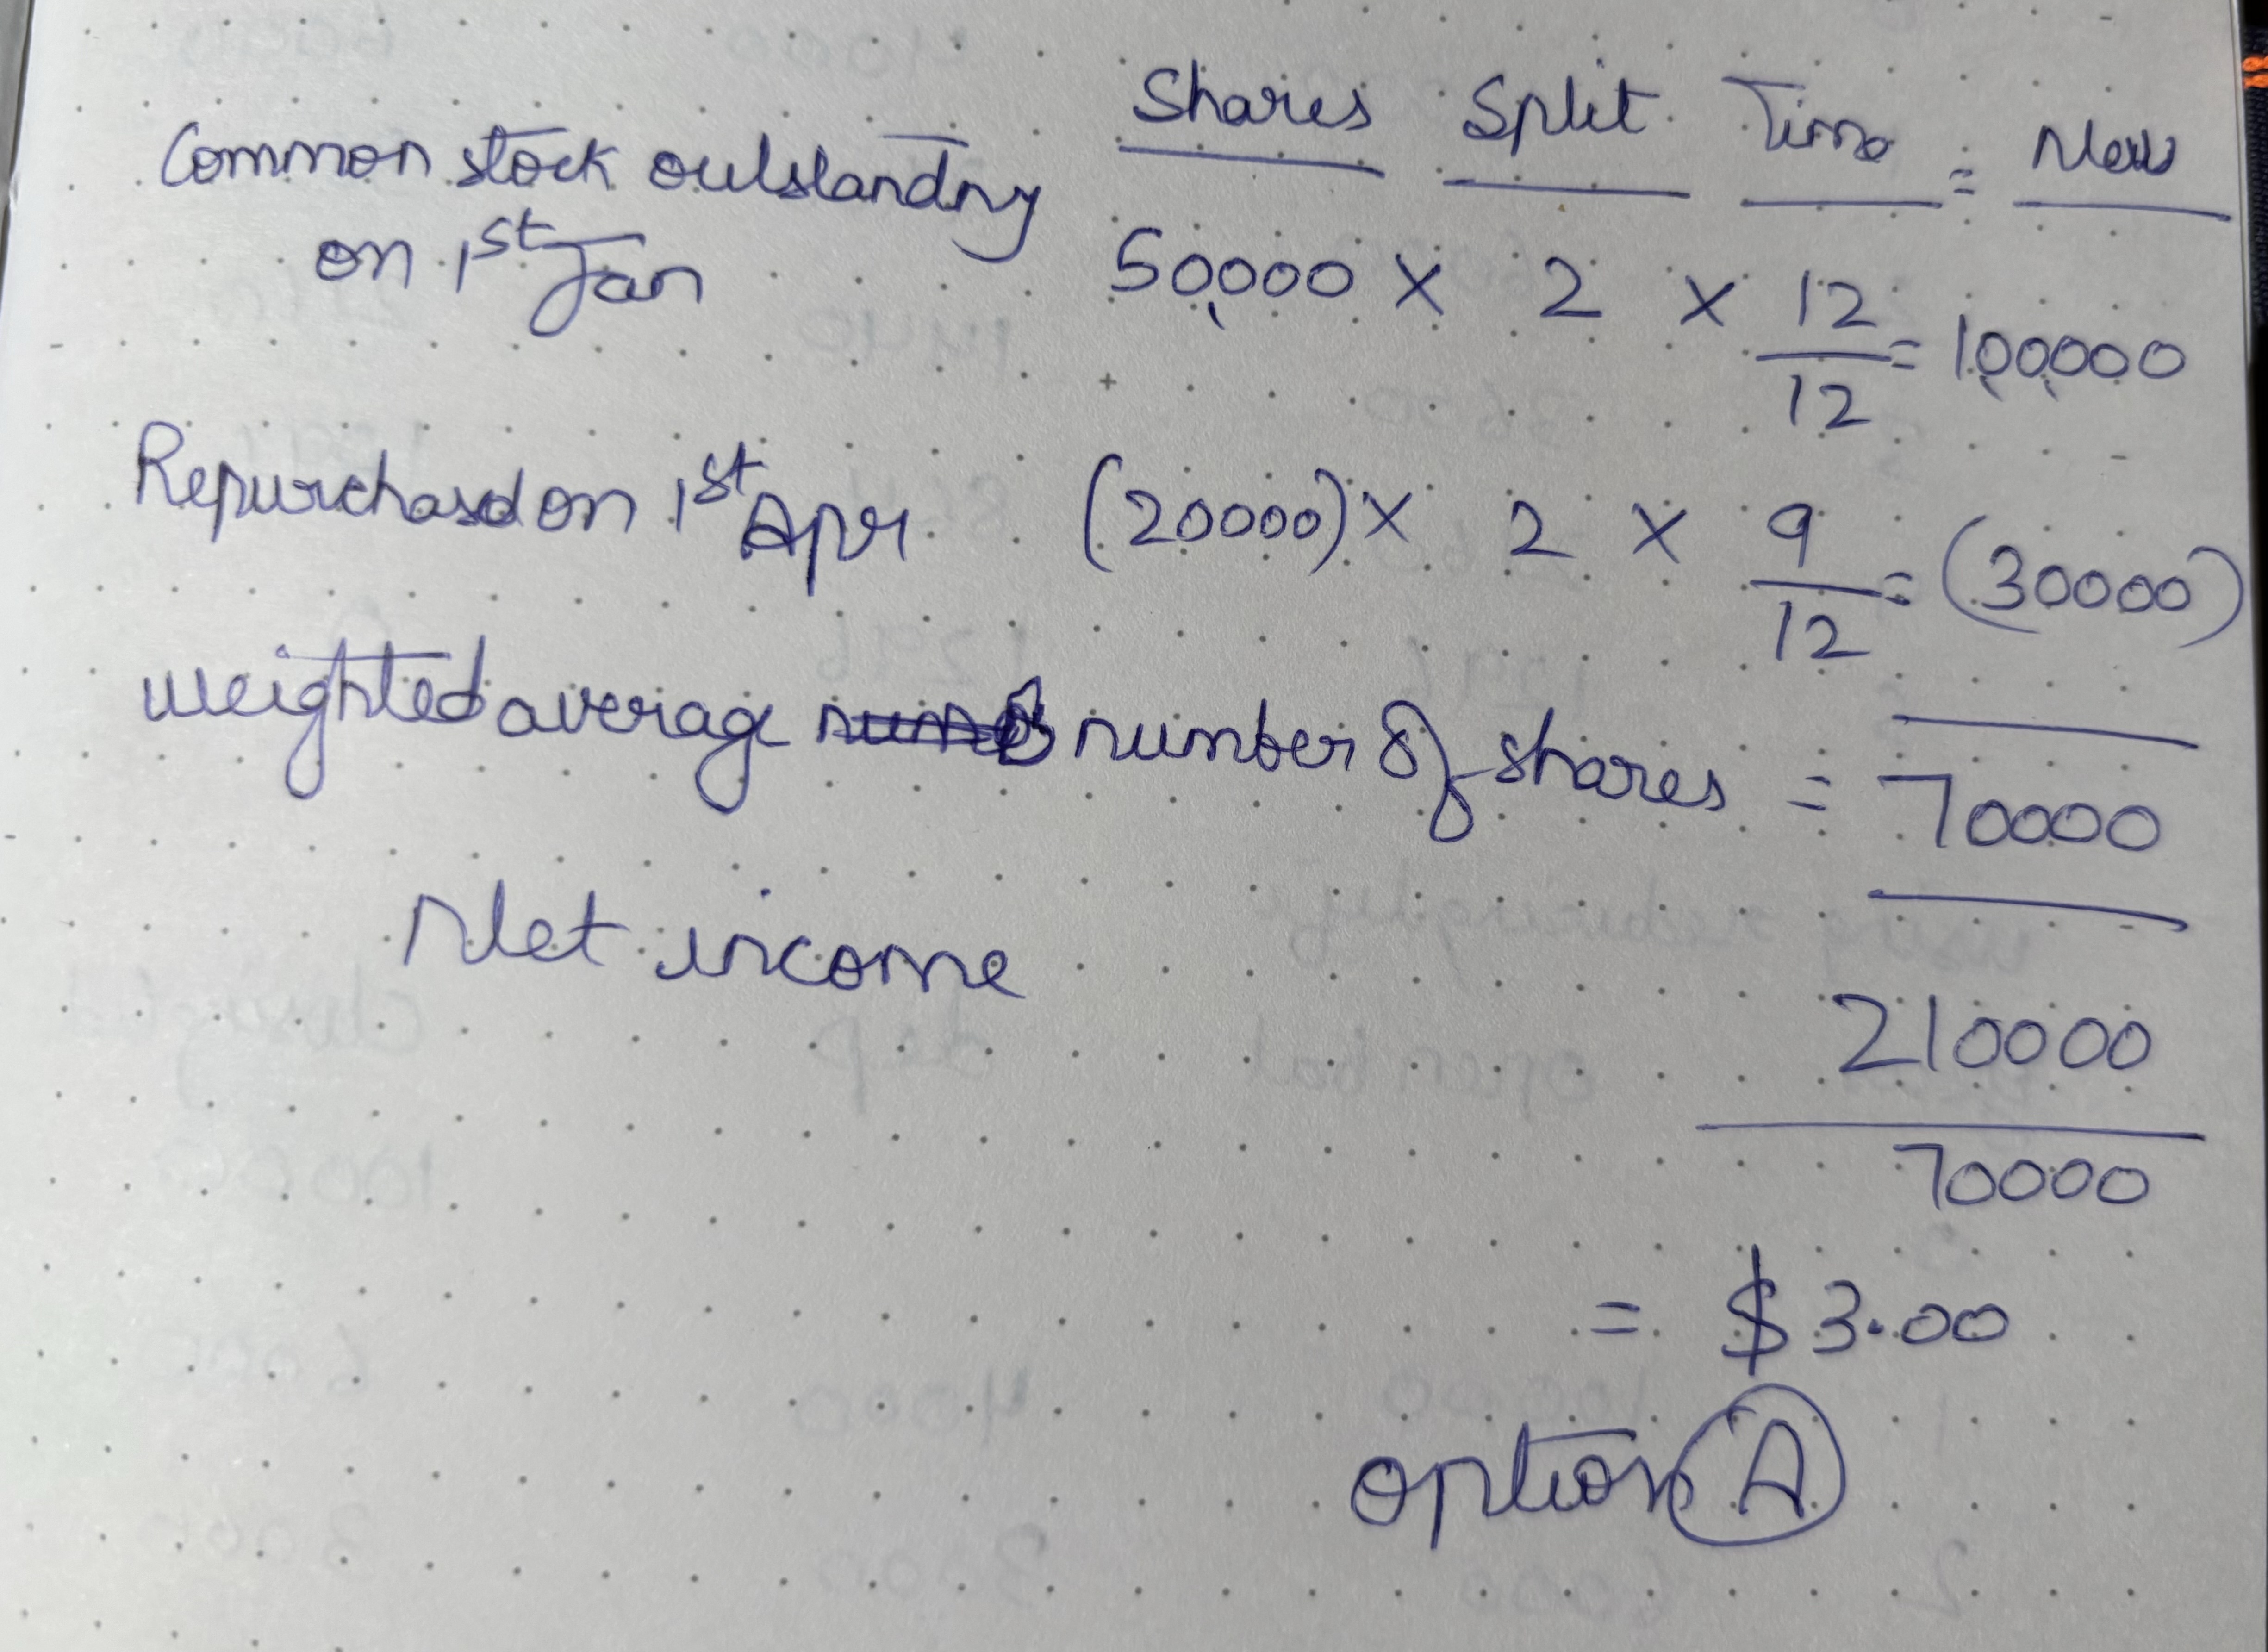 Shares Split Time = New
Common stock outstanding
on 1st Jan 50,000 × 2 × 12/12 = 1,00,000
Repurchased on 1st Apr (20000) × 2 × 9/12 = (30000)
weighted average number of shares = 70000
Net income
210000
70000
= $3.00
option A